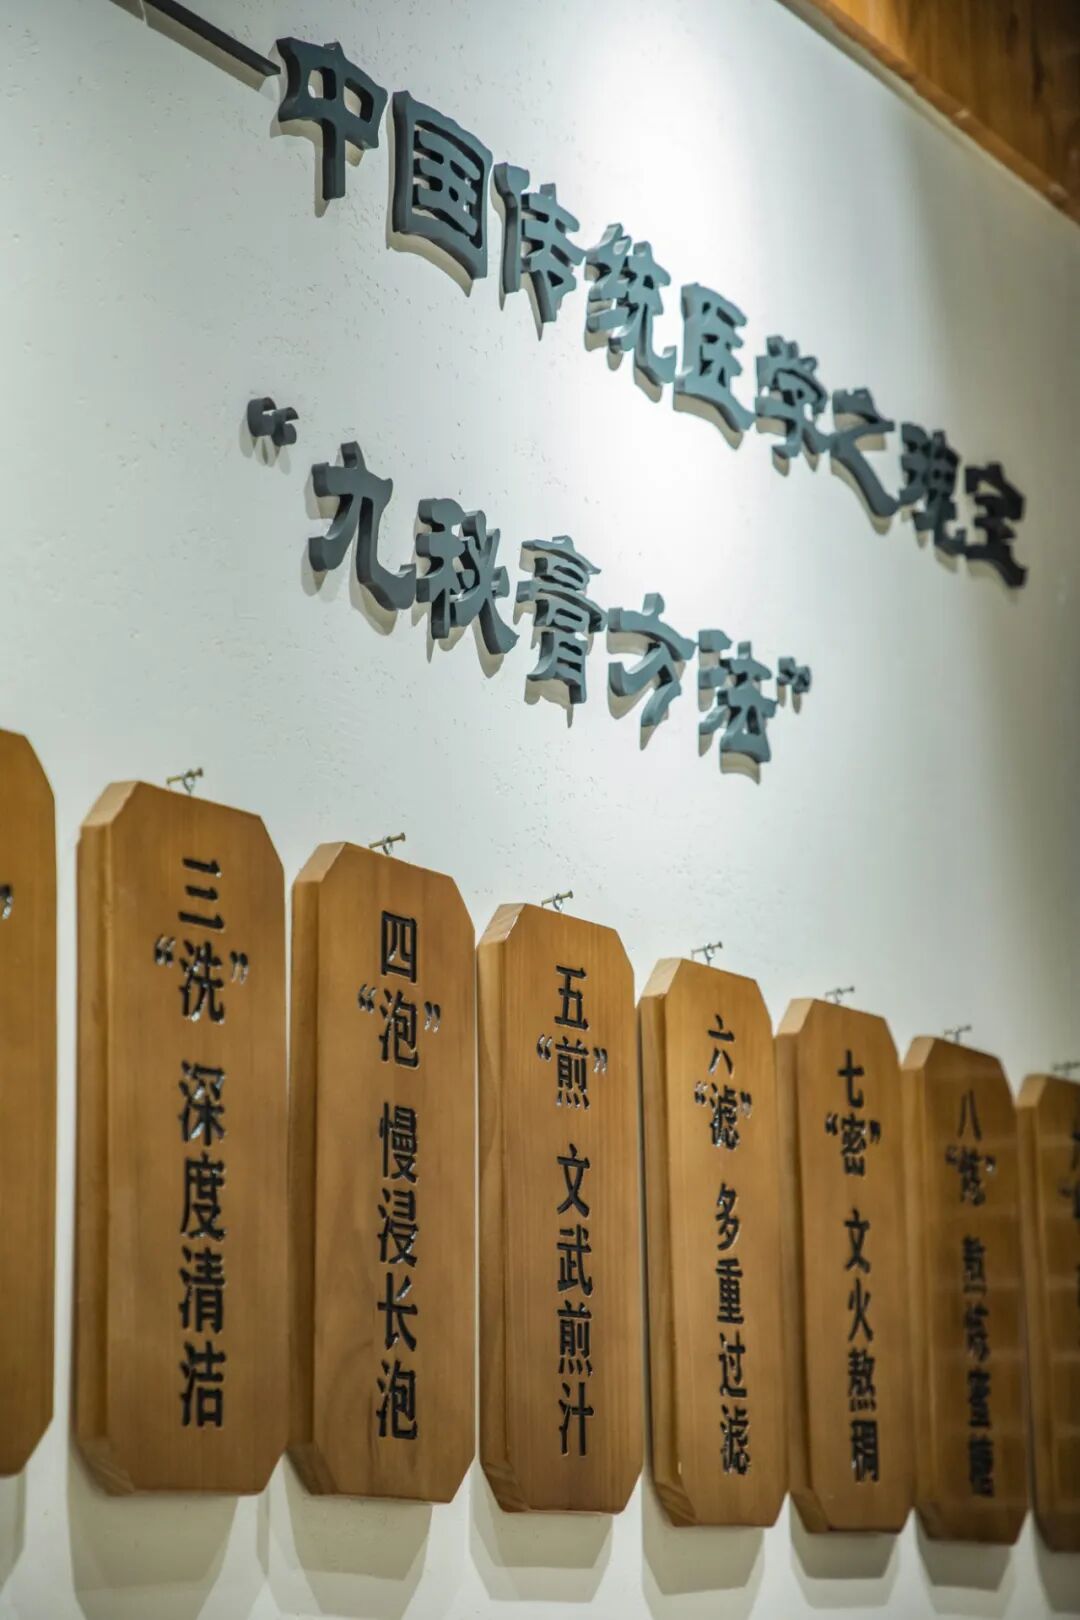 中国传统医学之瑰宝
“九秘膏方法”
三“洗” 深度清洁
四“泡” 慢浸长泡
五“煎” 文武煎汁
六“滤” 多重过滤
七“密” 文火熬稠
八“炼” 熬炼蜜糖